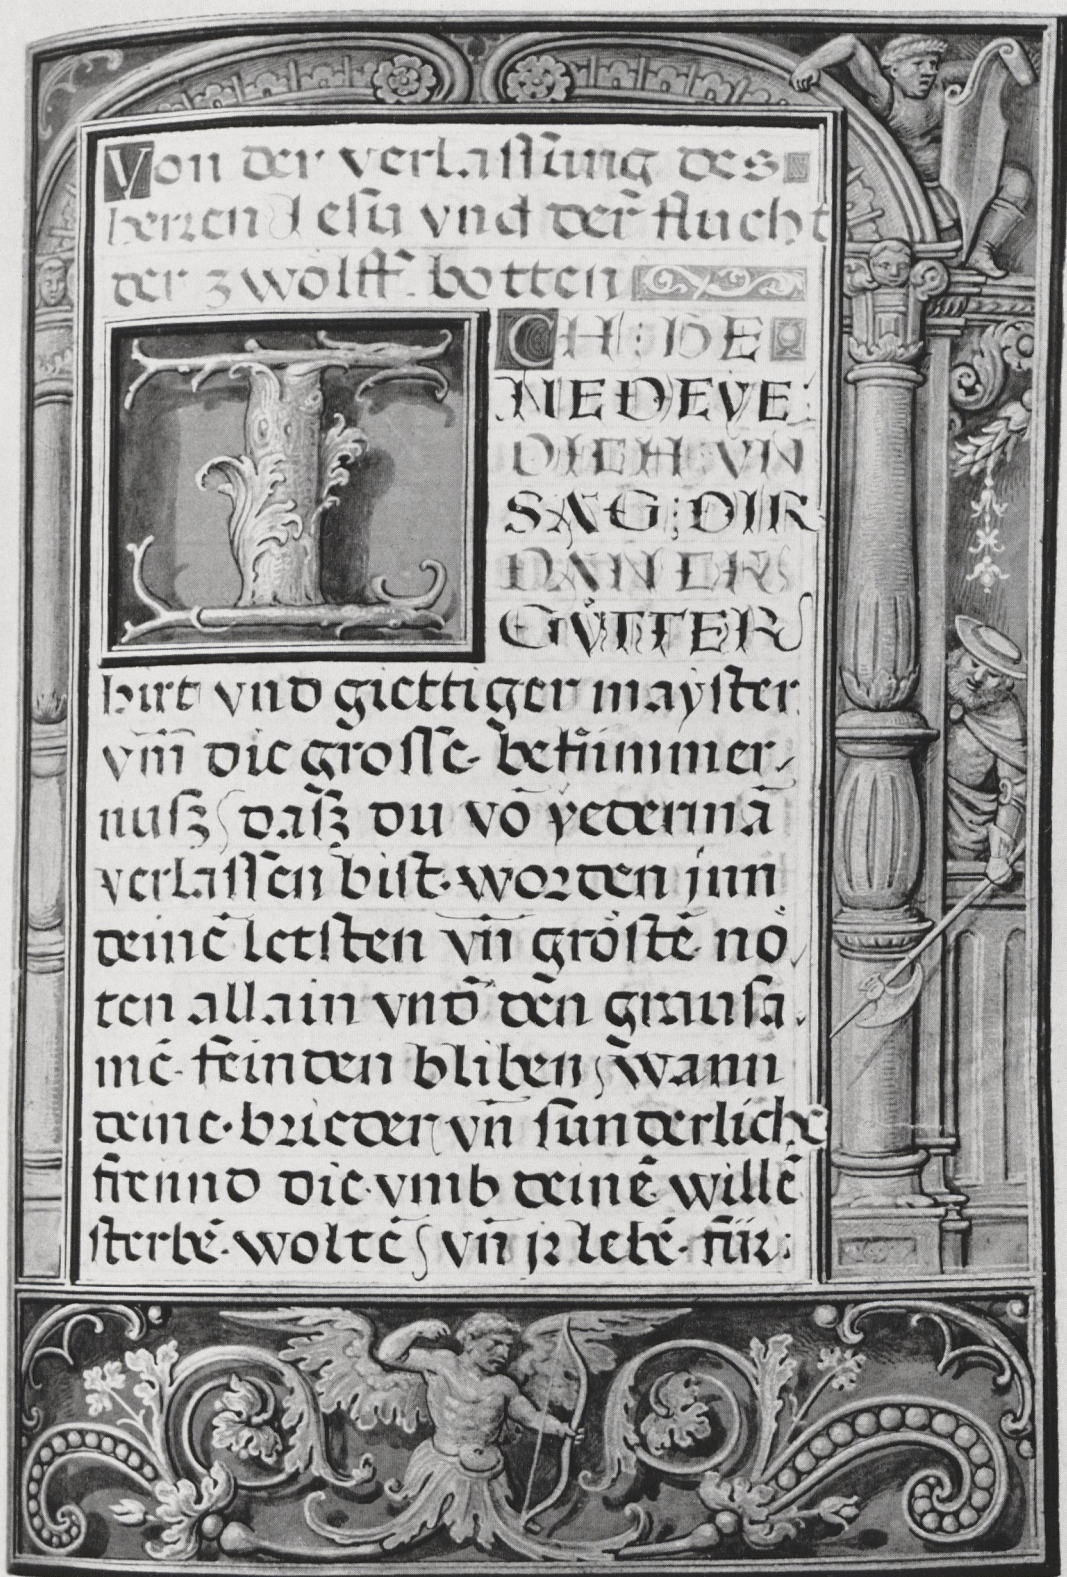 Von der verlassũng des
herren Jesu vnd der̃ flucht
der zwölff botten
I CH : BE
NEDEYE
DICH VN̄
SAG ; DIR
DANCK
GŮTTER
hirt vnd giettiger mayster
vm̄ die grosse bekümmer
nusz dasz du vō yederman̄
verlassen bist worden jnn
deinē letsten vn̄ gröstē nö
ten allain vnd den̄ grausa
mē feinden bliben wann
deine brieder vn̄ sunderlichē
freund die vmb deinē willē
sterbē woltē vn̄ jr lebē für